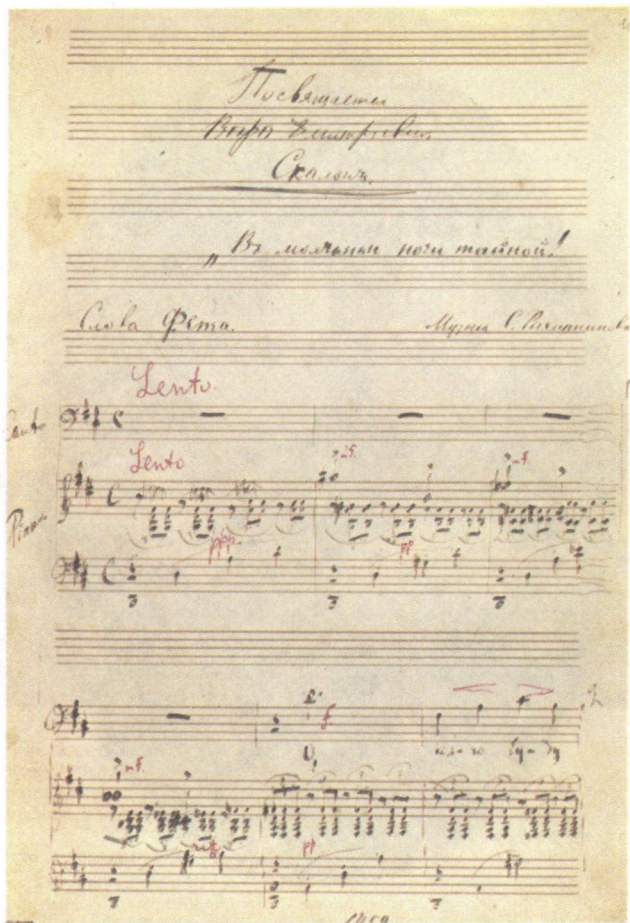 Посвящается
Вѣрѣ Дмитріевнѣ
Скалонъ.
„Въ молчаньи ночи тайной!
Слова Фета.
Музыка С. Рахманинова
Lento.
Canto
Lento
Piano
mf.
mf.
ppp.
pp
f
mf.
О,
долго бу-ду
rit
pp